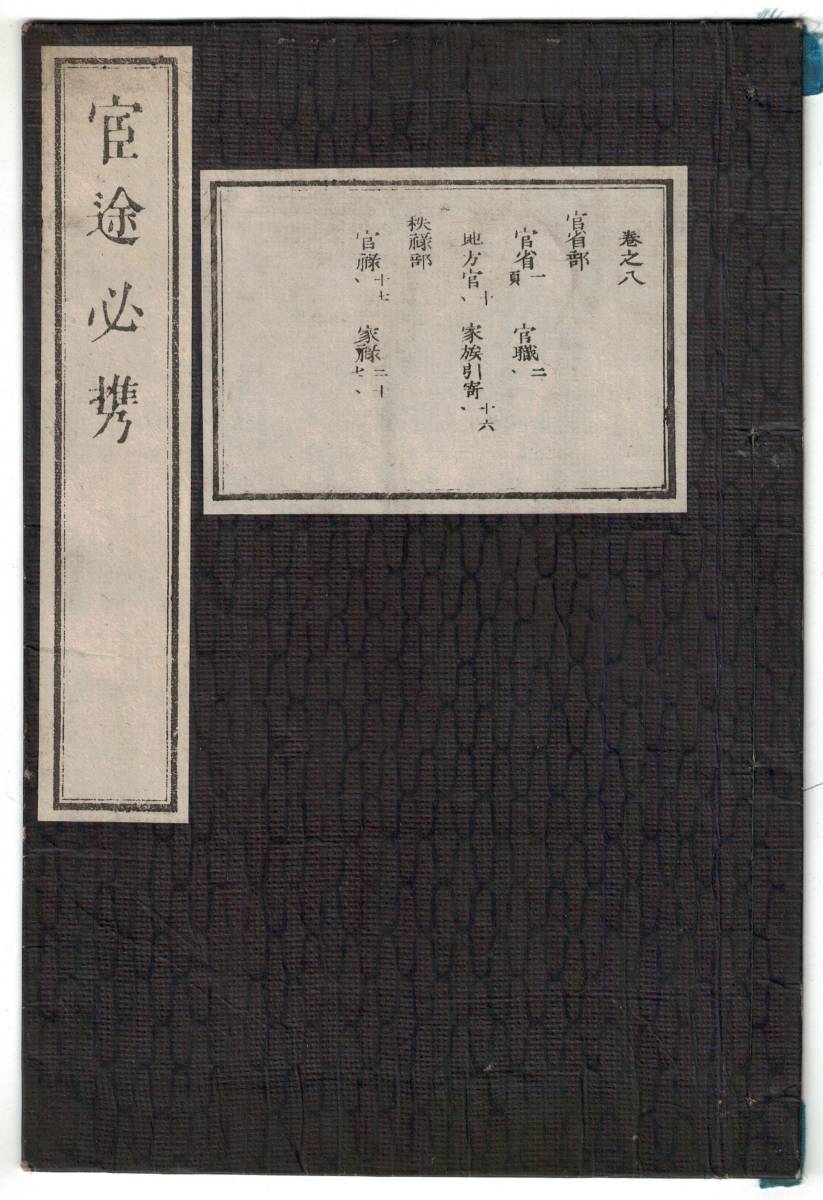 宦途必携
巻之八
官省部
官省一頁 官職二、
地方官十、 家族引寄十六、
秩禄部
官禄十七、 家禄二十七、